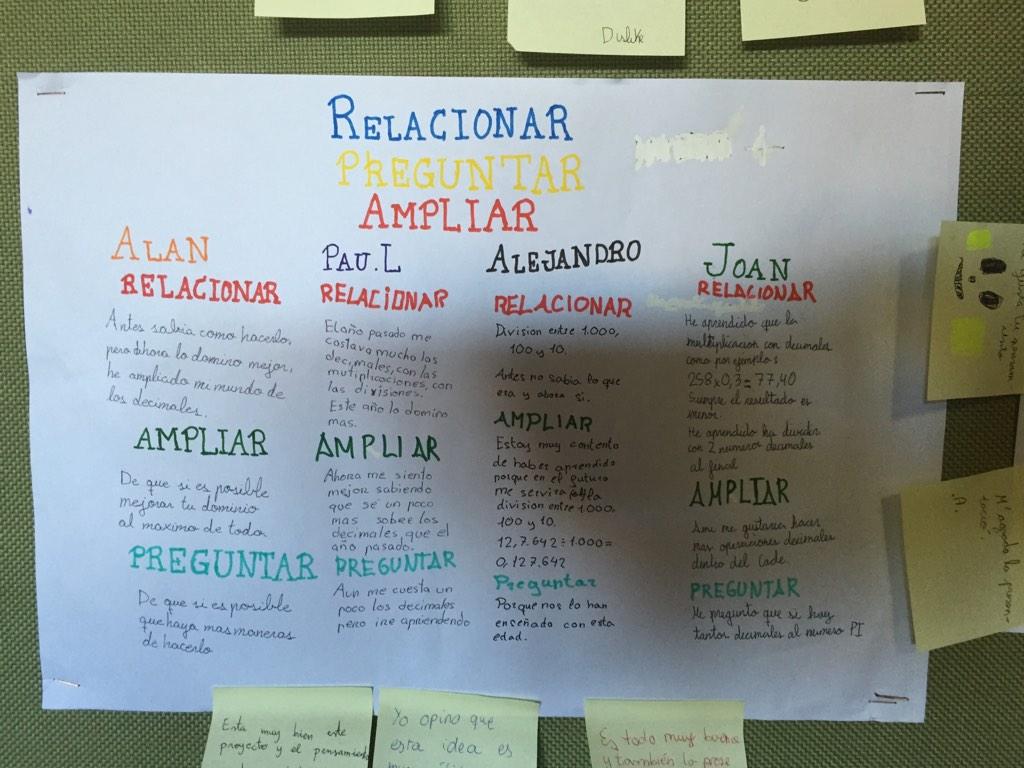 Dulike
RELACIONAR
PREGUNTAR
AMPLIAR
ALAN
RELACIONAR
Antes sabia como hacerlo,
pero ahora lo domino mejor,
he ampliado mi mundo de
los decimales.
AMPLIAR
De que si es posible
mejorar tu dominio
al maximo de todo.
PREGUNTAR
De que si es posible
que haya mas maneras
de hacerlo
PAU.L
RELACIONAR
El año pasado me
costava mucho los
decimales, con las
mutiplicaciones, con
las divisiones.
Este año lo domino
mas.
AMPLIAR
Ahora me siento
mejor sabiendo
que se un poco
mas sobre los
decimales que el
año pasado.
PREGUNTAR
Aun me cuesta un
poco los decimales
pero ire aprendendo
ALEJANDRO
RELACIONAR
Division entre 1.000,
100 y 10.
Antes no sabia lo que
era y ahora si.
AMPLIAR
Estoy muy contento
de haber aprendido
porque en el futuro
me servira la
division entre 1.000,
100 y 10.
12,7.642 ÷ 1.000 =
0,127.642
Preguntar
Porque nos lo han
enseñado con esta
edad.
JOAN
RELACIONAR
He aprendido que la
multiplicacion con decimales
como por ejemplo:
258 x 0,3 = 77,40
Siempre el resultado es
menor.
He aprendido ha dividir
con 2 numeros decimales
al final
AMPLIAR
Ami me gustaria hacer
mas operaciones decimales
dentro del
PREGUNTAR
Me pregunto que si hay
tantos decimales al numero PI
M'agrada la
A.
Esta muy bien este
proyecto y el pensamiento
Yo opino que
esta idea es
Es todo muy bueno
y tambien lo